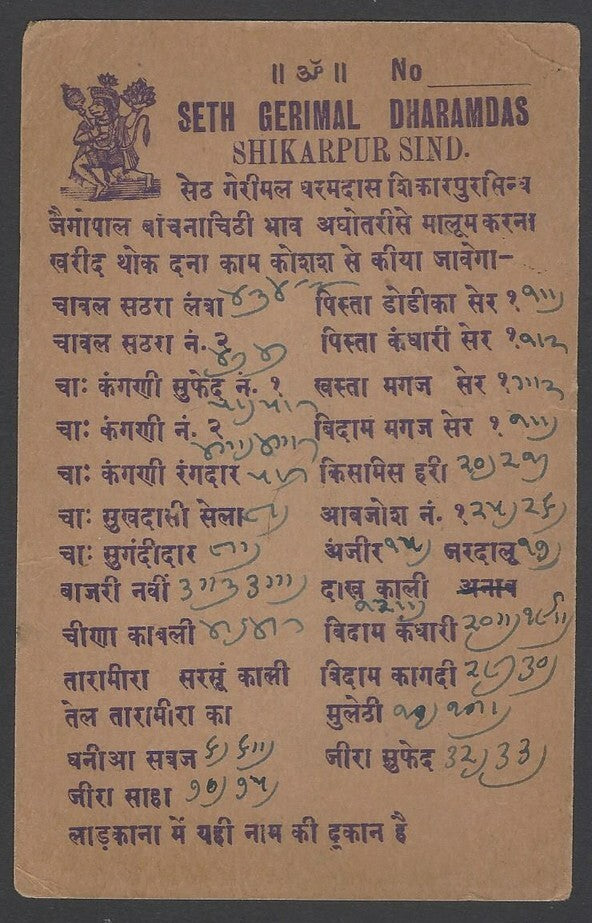 ॥ ॐ ॥ No
SETH GERIMAL DHARAMDAS
SHIKARPUR SIND.
सेठ गेरीमल धरमदास शिकारपुर सिन्ध
जैगोपाल बांचना चिठी भाव अघोतरीसे मालूम करना
खरीद थोक दना काम कोशश से कीया जावेगा-
चावल सठरा लंबा पिस्ता डोडीका सेर १
चावल सठरा नं. २ पिस्ता कंधारी सेर १
चाः कंगणी सुफेद नं. १ खस्ता मगज सेर १
चाः कंगणी नं. २ बिदाम मगज सेर १
चाः कंगणी रंगदार किसमिस हरी २०) २१)
चाः सुखदासी सेला आबजोश नं. १ २५) २६)
चाः सुगंदीदार अंजीर १५) जरदालू १७)
बाजरी नवीं दाख काली अनाब
चीणा काबली बिदाम कंधारी
तारामीरा सरसूं काली बिदाम कागदी २८) ३०)
तेल तारामीरा का मुलेठी
धनीआ सबज ६) ६॥) जीरा सुफेद ३२) ३३)
जीरा साहा १०) १५)
लाड़काना में यही नाम की दूकान है